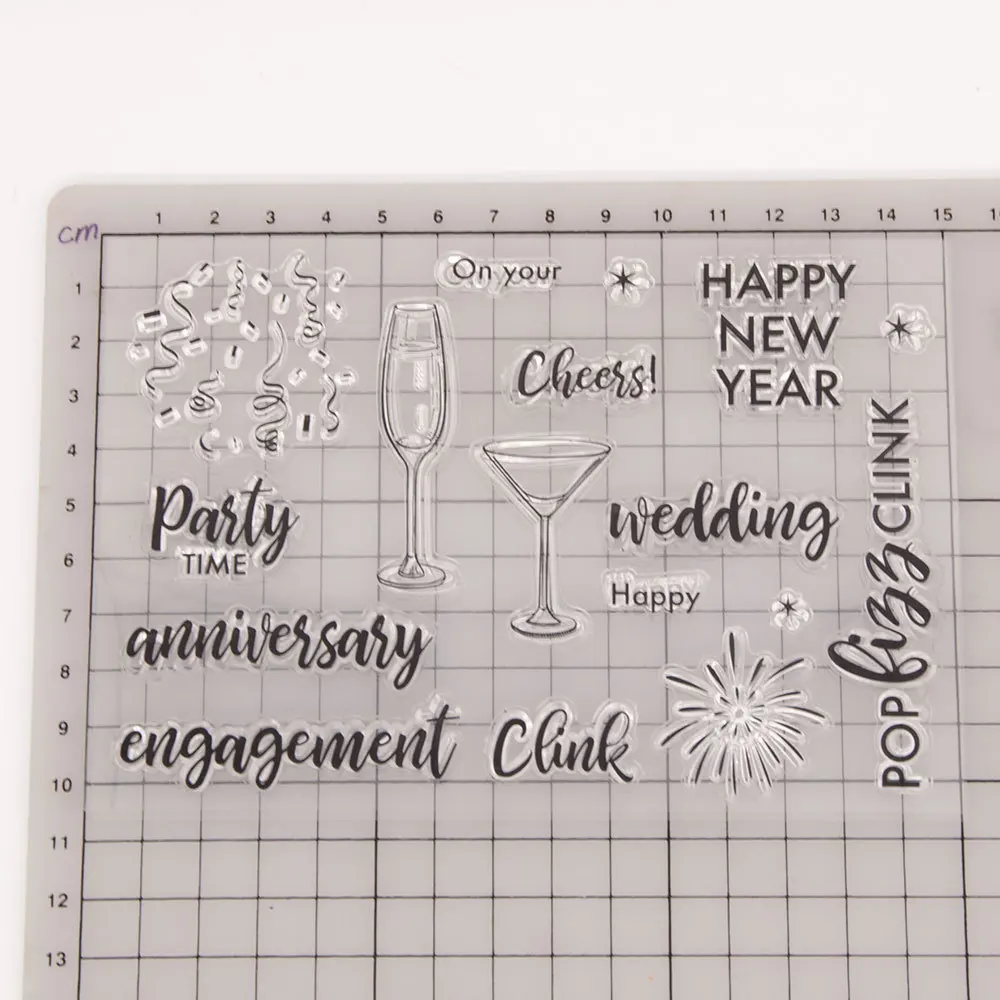 1 2 3 4 5 6 7 8 9 10 11 12 13 14 15
cm
1
2
3
4
5
6
7
8
9
10
11
12
13
On your
HAPPY
NEW
YEAR
Cheers!
Party
TIME
wedding
Happy
anniversary
engagement
Clink
POP fizz CLINK